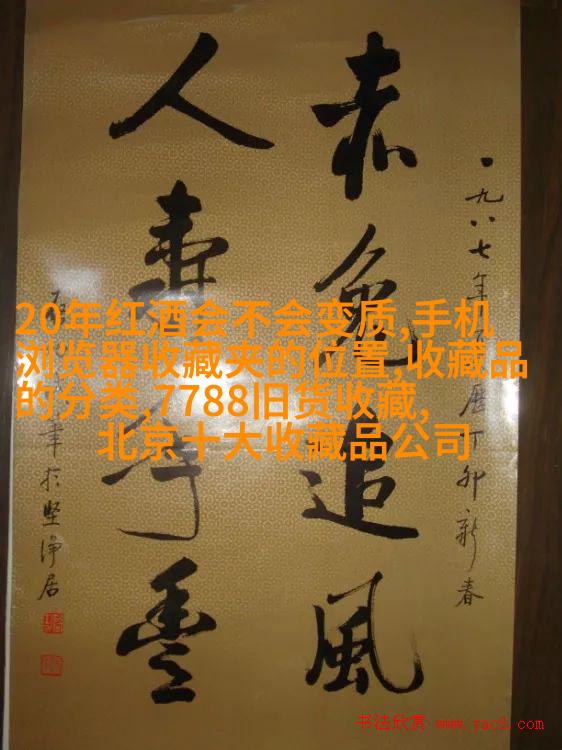 一九八七年
丁卯新春
赤兔追風
人壽年豐
筆於堅净居
20年红酒会不会变质,手机
浏览器收藏夹的位置,收藏品
的分类,7788旧货收藏,
北京十大收藏品公司
书法欣赏 www.yac8.com